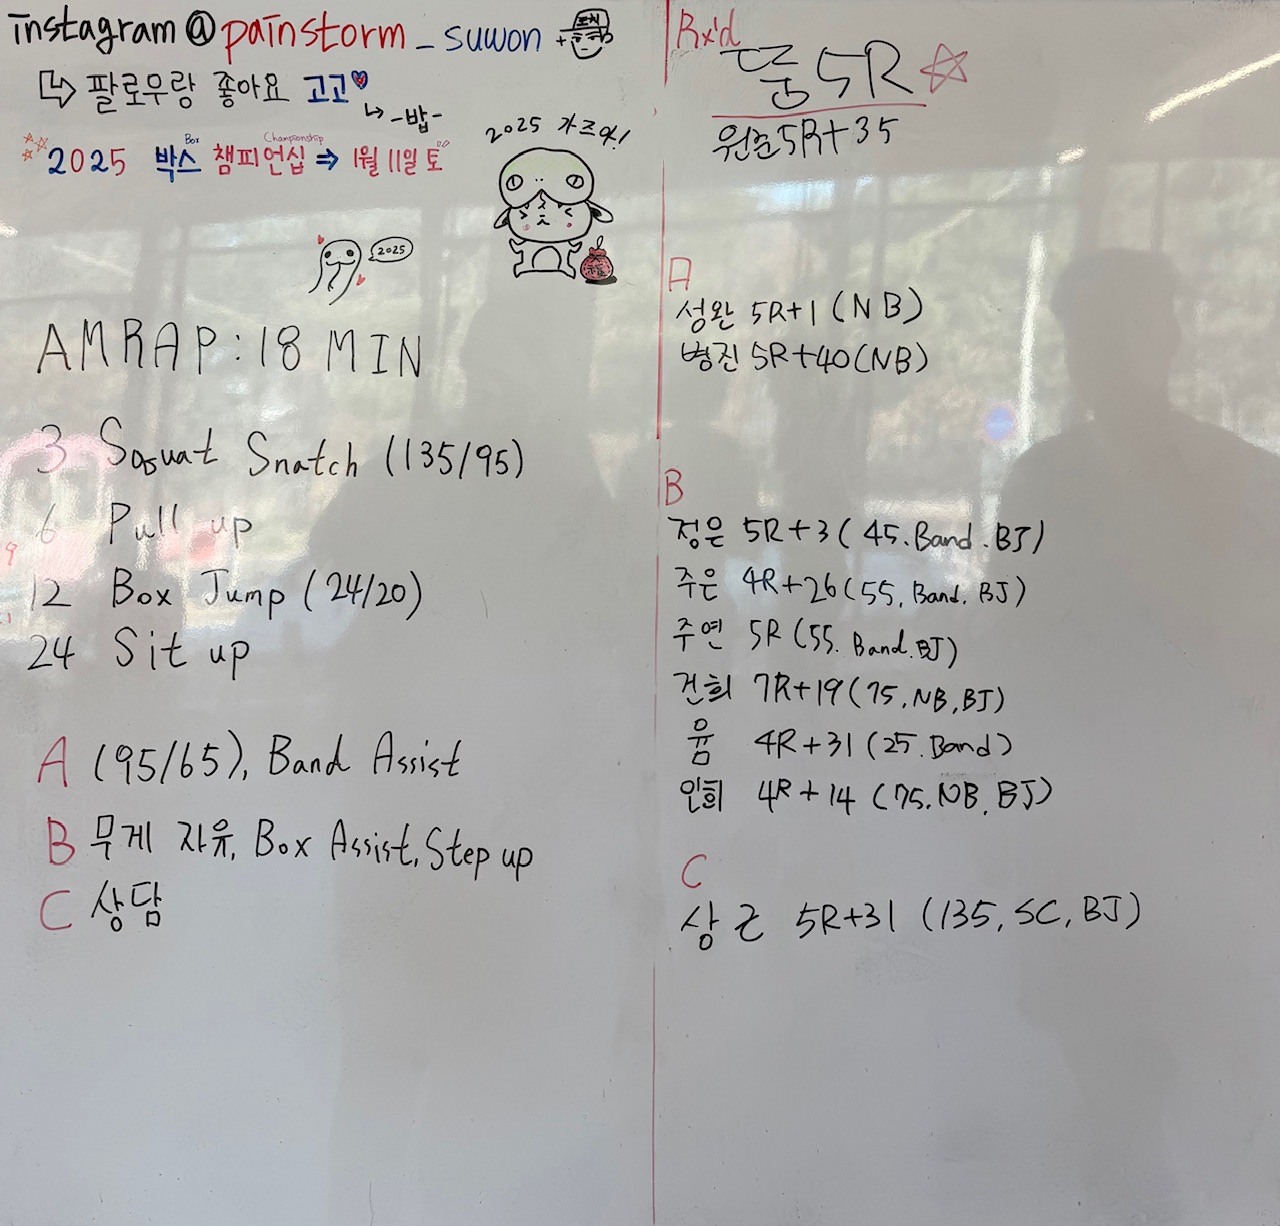 instagram@painstorm_suwon +
코치
팔로우랑 좋아요 고고
-밥-
2025 박스 챔피언십 ⇒ 1월 11일 토
Box Championship
2025 가즈아!
2025
福
AMRAP : 18 MIN
3 Squat Snatch (135/95)
6 Pull up
12 Box Jump (24/20)
24 Sit up
A (95/65), Band Assist
B 무게 자유, Box Assist, Step up
C 상담
9
Rx'd
뚬 5R
원준 5R+35
A
성완 5R+1 (NB)
병진 5R+40 (NB)
B
정은 5R+3 (45. Band. BJ)
주은 4R+26 (55, Band, BJ)
주연 5R (55. Band. BJ)
건희 7R+19 (75, NB, BJ)
윰 4R+31 (25. Band)
인희 4R+14 (75. NB. BJ)
C
상근 5R+31 (135, SC, BJ)